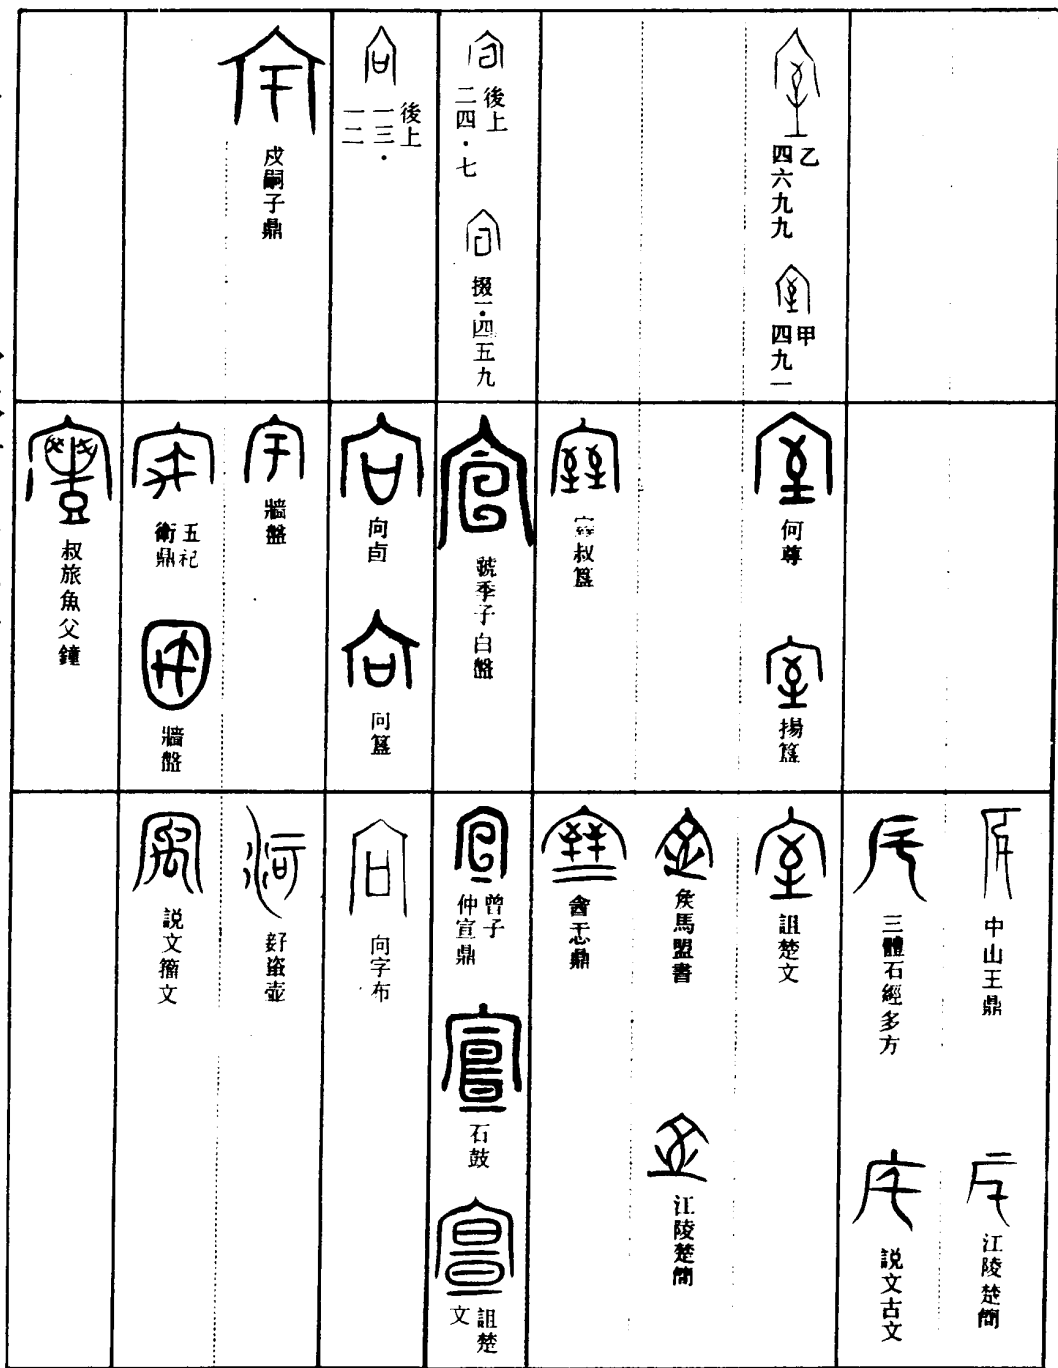 乙
四六九九
甲
四九一
後上
二四·七
掇一·四五九
後上
一三·
一二
戍嗣子鼎
何尊
揚簋
叔簋
虢季子白盤
向卣
向簋
牆盤
五祀
衛鼎
牆盤
叔旅魚父鐘
中山王鼎
江陵楚簡
三體石經多方
説文古文
詛楚文
矦馬盟書
江陵楚簡
酓忎鼎
曾子
仲宣鼎
石鼓
詛楚
文
向字布
盗壺
説文籀文